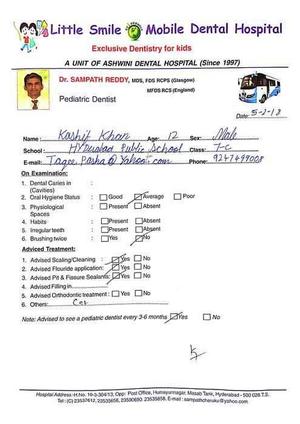 Little Smile Mobile Dental Hospital
Exclusive Dentistry for kids
A UNIT OF ASHWINI DENTAL HOSPITAL (Since 1997)
Dr. SAMPATH REDDY, MDS, FDS RCPS (Glasgow)
MFDS RCS (England)
Pediatric Dentist
Date: 5-2-13
Name: Kashif Khan Age: 12 Sex: Male
School: Hyderabad Public School Class: 7-C
E-mail: Pasha@Yahoo.com Phone: 9247499008
On Examination:
1. Dental Caries in (Cavities) :
2. Oral Hygiene Status : Good Average Poor
3. Physiological Spaces : Present Absent
4. Habits : Present Absent
5. Irregular teeth : Present Absent
6. Brushing twice : Yes No
Adviced Treatment:
1. Advised Scaling/Cleaning : Yes No
2. Advised Flouride application: Yes No
3. Advised Pit & Fissure Sealants: Yes No
4. Advised Filling in
5. Advised Orthodontic treatment : Yes No
6. Others:
Note: Advised to see a pediatric dentist every 3-6 months Yes No
Hospital Address: H.No. 10-3-304/13, Opp: Post Office, Humayunnagar, Masab Tank, Hyderabad - 500 028 T.S.
Tel: (O) 23537612, 23535658, 23530690 23535658, E-mail: sampathcheruku@yahoo.com